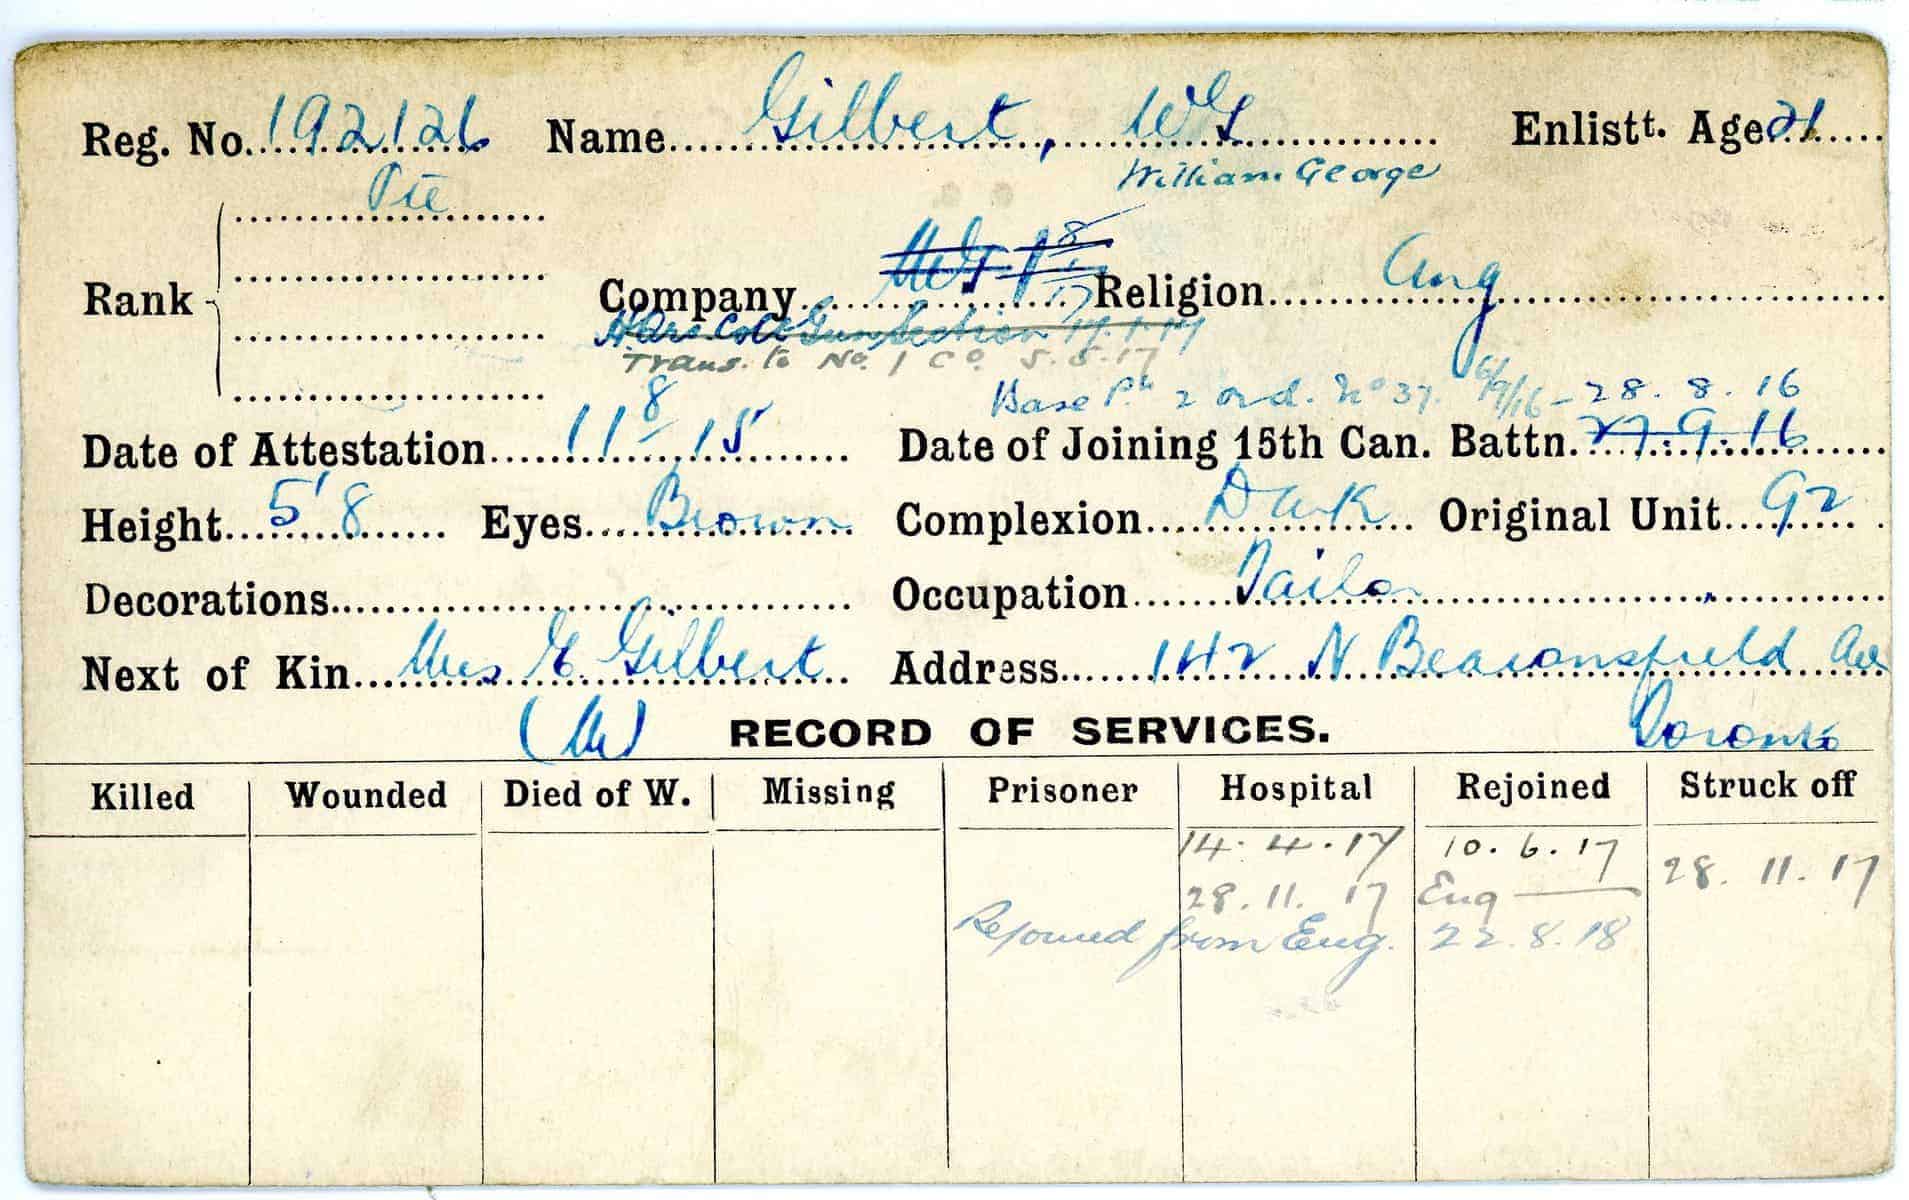 Reg. No. 192126 Name Gilbert, W G Enlistt. Age 21
William George
Pte
Rank
Company Religion Ang
Hdrs Colt Gun Section 17.1.17
Trans. to No. 1 Co. 5.5.17
Base Pt 2 ord. No 37. 6/9/16 - 28. 8. 16
Date of Attestation 11 8 15 Date of Joining 15th Can. Battn. 27.9.16
Height 5' 8 Eyes Brown Complexion Dark Original Unit 92
Decorations Occupation Tailor
Next of Kin Mrs E. Gilbert Address 142 N Beaconsfield Ave
(M) RECORD OF SERVICES. Toronto
Killed Wounded Died of W. Missing Prisoner Hospital Rejoined Struck off
14. 4. 17 10. 6. 17 28. 11. 17
28. 11. 17 Eng
Rejoined from Eng. 22.8.18